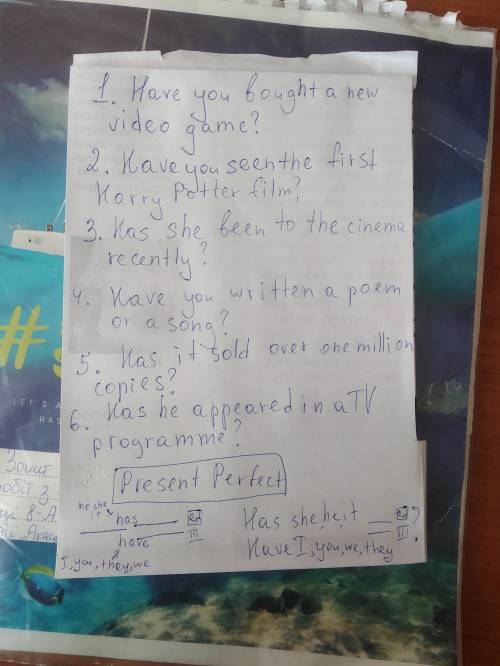 1. Have you bought a new
video game?
2. Have you seen the first
Harry Potter film?
3. Has she been to the cinema
recently?
4. Have you written a poem
or a song?
5. Has it sold over one million
copies?
6. Has he appeared in a TV
programme?
Present Perfect
he she
it
has
ed
have
III
I, you, they, we
Has she, he, it
ed
?
Have I, you, we, they
III
#
LET'S A
HAS
Зошит